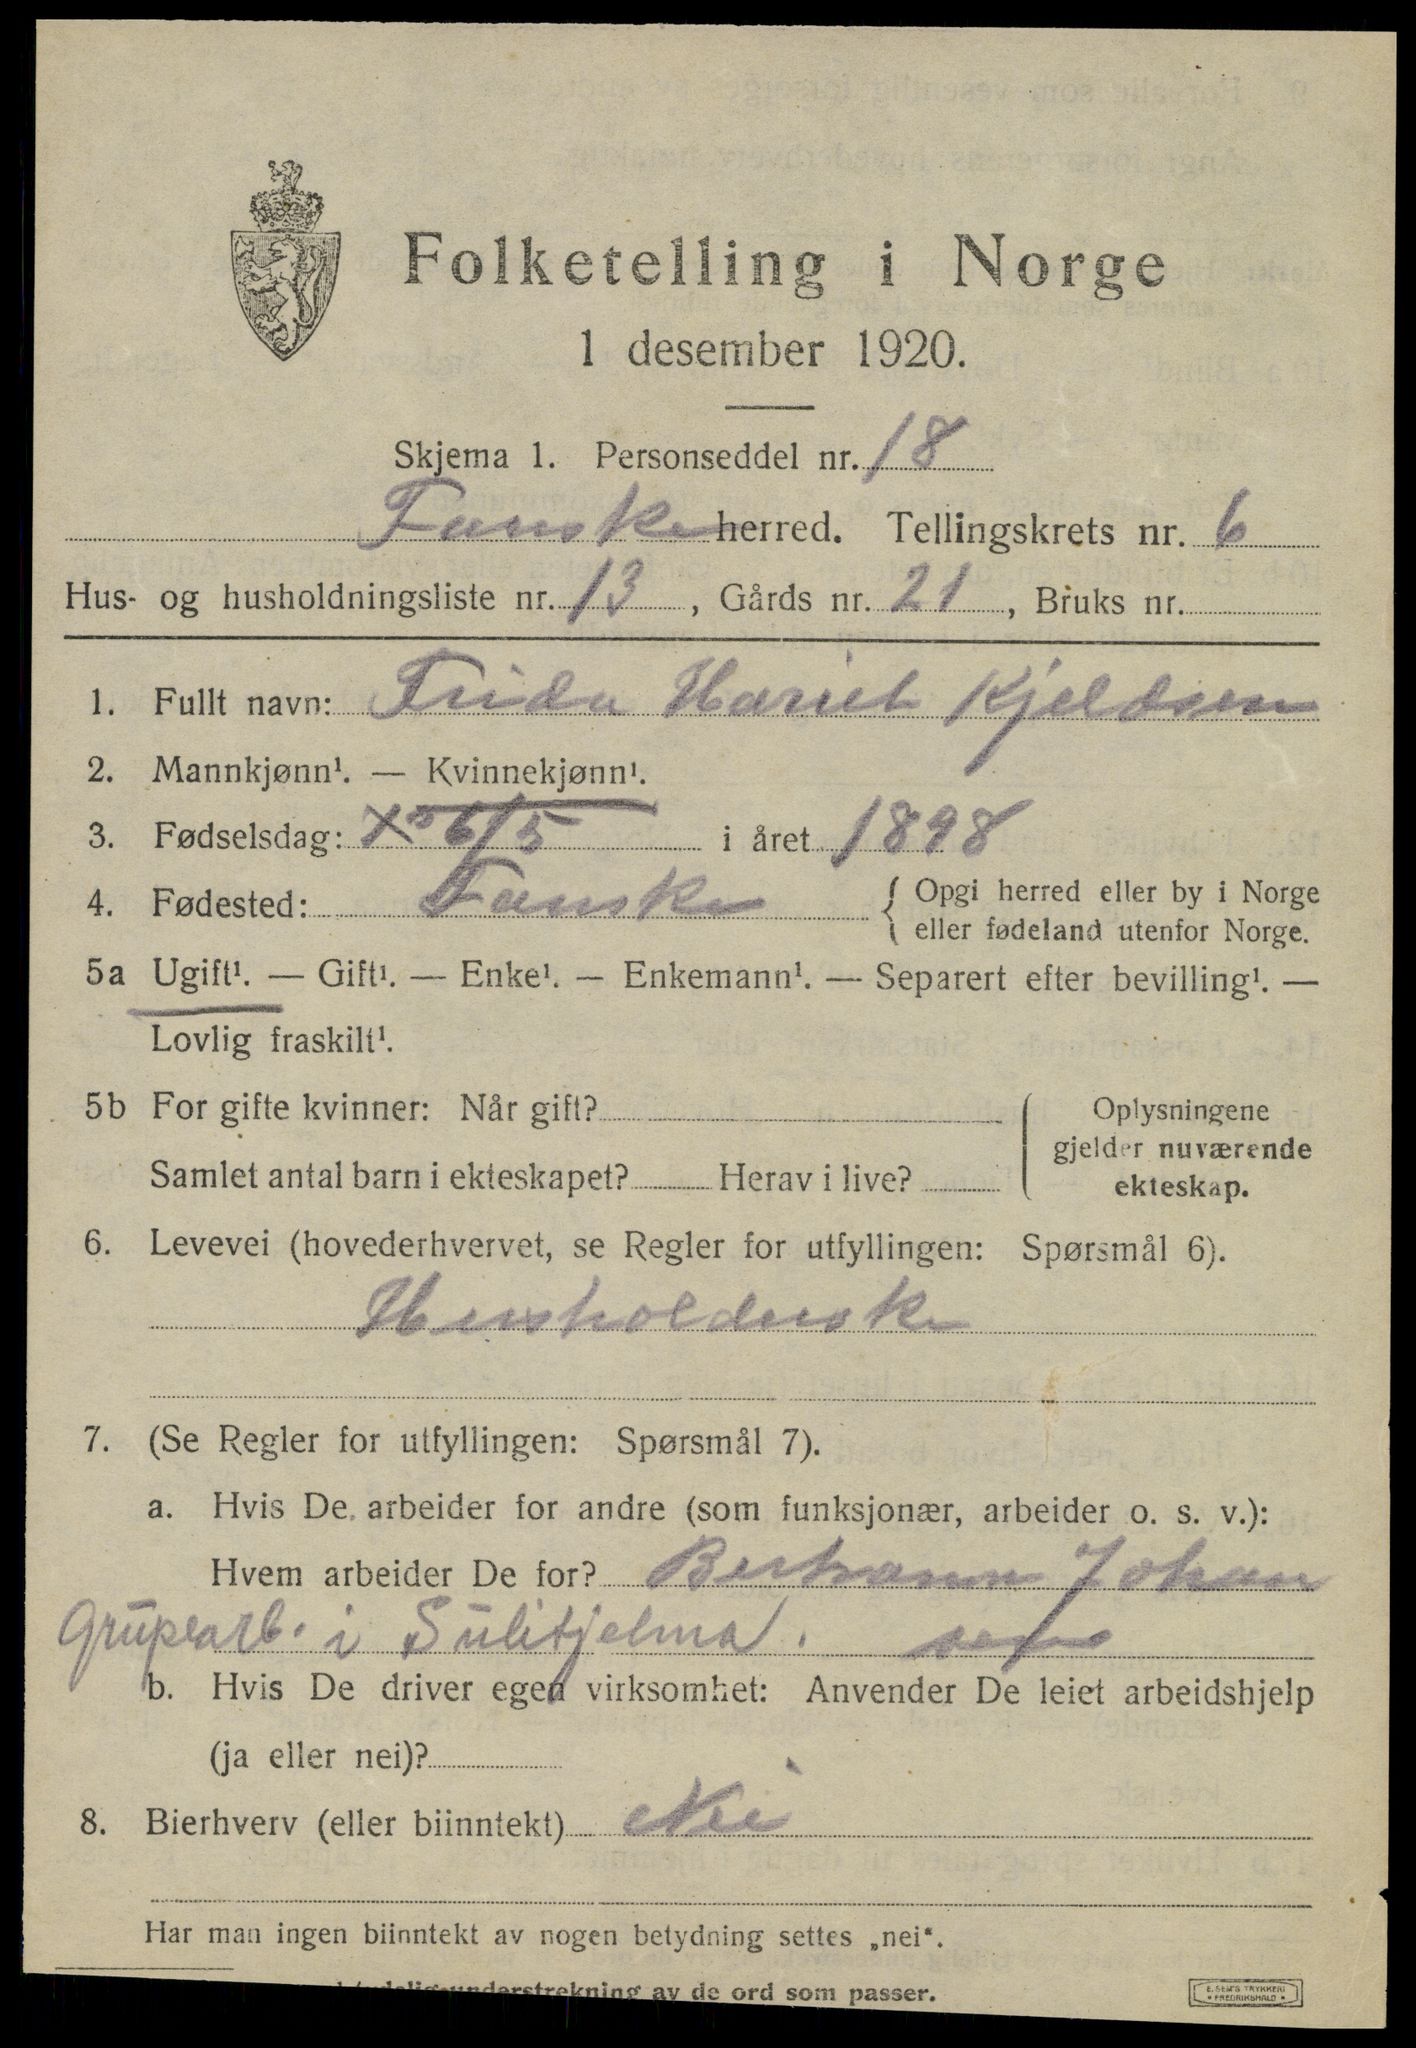 Folketelling i Norge
1 desember 1920.
Skjema 1. Personseddel nr. 18
Fauske herred. Tellingskrets nr. 6
Hus- og husholdningsliste nr. 13, Gårds nr. 21, Bruks nr.
1. Fullt navn: Frida Hariet Kjeldsen
2. Mannkjønn¹. — Kvinnekjønn¹.
3. Fødselsdag: 6/5 i året 1898
4. Fødested: Fauske { Opgi herred eller by i Norge
eller fødeland utenfor Norge.
5a Ugift¹. — Gift¹. — Enke¹. — Enkemann¹. — Separert efter bevilling¹. —
Lovlig fraskilt¹.
5b For gifte kvinner: Når gift? Oplysningene
gjelder nuværende
Samlet antal barn i ekteskapet? Herav i live? ekteskap.
6. Levevei (hovederhvervet, se Regler for utfyllingen: Spørsmål 6).
Husholderske
7. (Se Regler for utfyllingen: Spørsmål 7).
a. Hvis De arbeider for andre (som funksjonær, arbeider o. s. v.):
Hvem arbeider De for? Johan
Grubearb. i Sulitjelma. sen
b. Hvis De driver egen virksomhet: Anvender De leiet arbeidshjelp
(ja eller nei)?
8. Bierhverv (eller biinntekt) Nei
Har man ingen biinntekt av nogen betydning settes „nei“.
understrekning av de ord som passer.
E. SEM'S TRYKKERI
FREDRIKSHALD